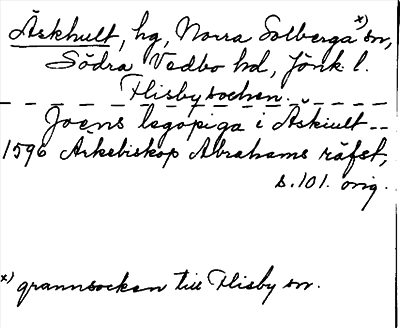 Äskhult, hg, Norra Solberga x) sn,
Södra Vedbo hd, Jönk. l.
Flisby socken.
Joens legopiga i Äskiult --
1596 Ärkebiskop Abrahams räfst,
s. 101. orig.
x) grannsocken till Flisby sn.